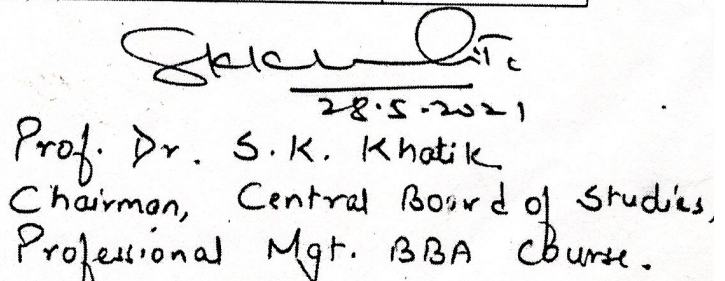 28.5.2021
Prof. Dr. S.K. Khatik
Chairman, Central Board of Studies,
Professional Mgt. BBA Course.